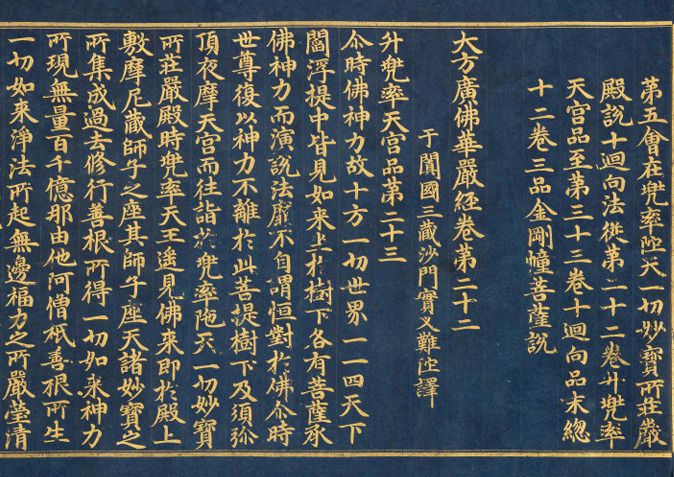 第五會在兜率陁天一切妙寶所莊嚴
殿說十迴向法從第二十二卷升兜率
天宮品至第三十三卷十迴向品末總
十二卷三品金剛幢菩薩說
大方廣佛華嚴経卷第二十二
于闐國三藏沙門實叉難陁譯
升兜率天宮品第二十三
尒時佛神力故十方一切世界一一四天下
閻浮提中皆見如来上扵樹下各有菩薩承
佛神力而演說法靡不自謂恒對扵佛尒時
世尊復以神力不離扵此菩提樹下及須弥
頂夜摩天宮而往詣扵兜率陁天一切妙寶
所莊嚴殿時兜率天王遙見佛来即扵殿上
敷摩尼藏師子之座其師子座天諸妙寶之
所集成過去修行善根所得一切如来神力
所現無量百千億那由他阿僧祇善根所生
一切如来淨法所起無邊福力之所嚴瑩清